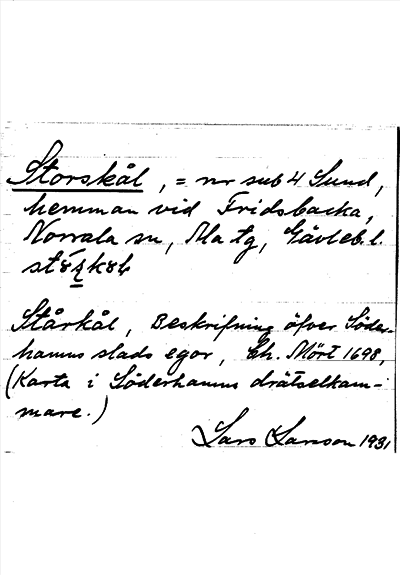 Storskål, = nr sub 4 Sund,
hemman vid Fridsbacka,
Norrala sn, Ma tg, Gävleb. l.

Stårkål, Beskrifning öfver Söder-
hamns stads egor, Ch. Mört 1698,
(Karta i Söderhamns drätselkam-
mare.)
Lars Larsson 1931